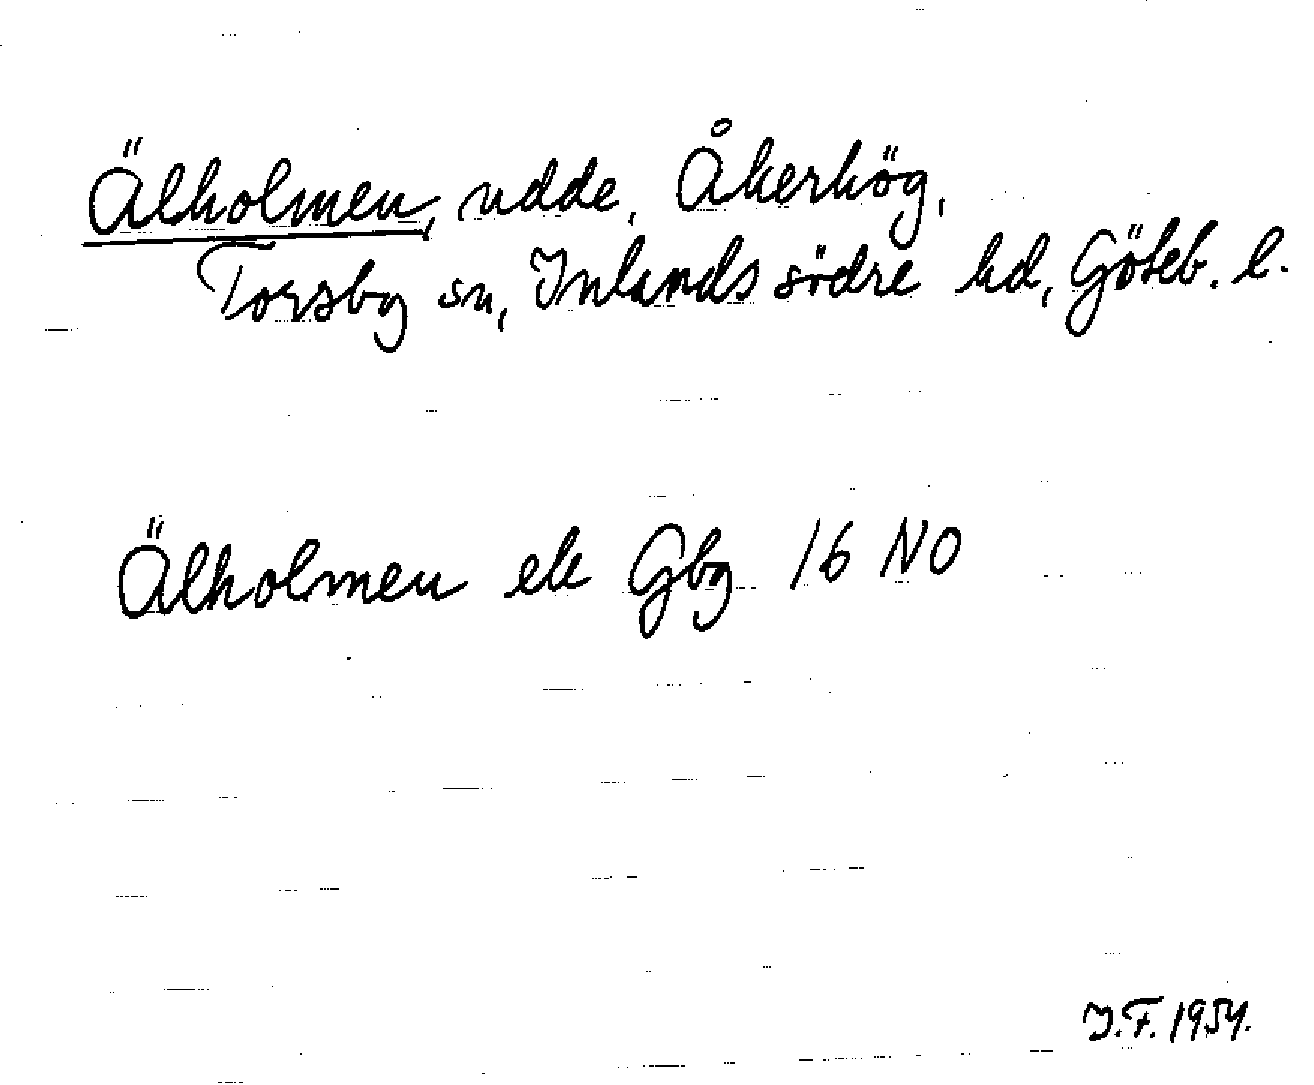 Älholmen, udde, Åkerhög,
Torsby sn, Inlands södre hd, Göteb. l.
Älholmen ek Gbg 16 NO
I.F. 1954.